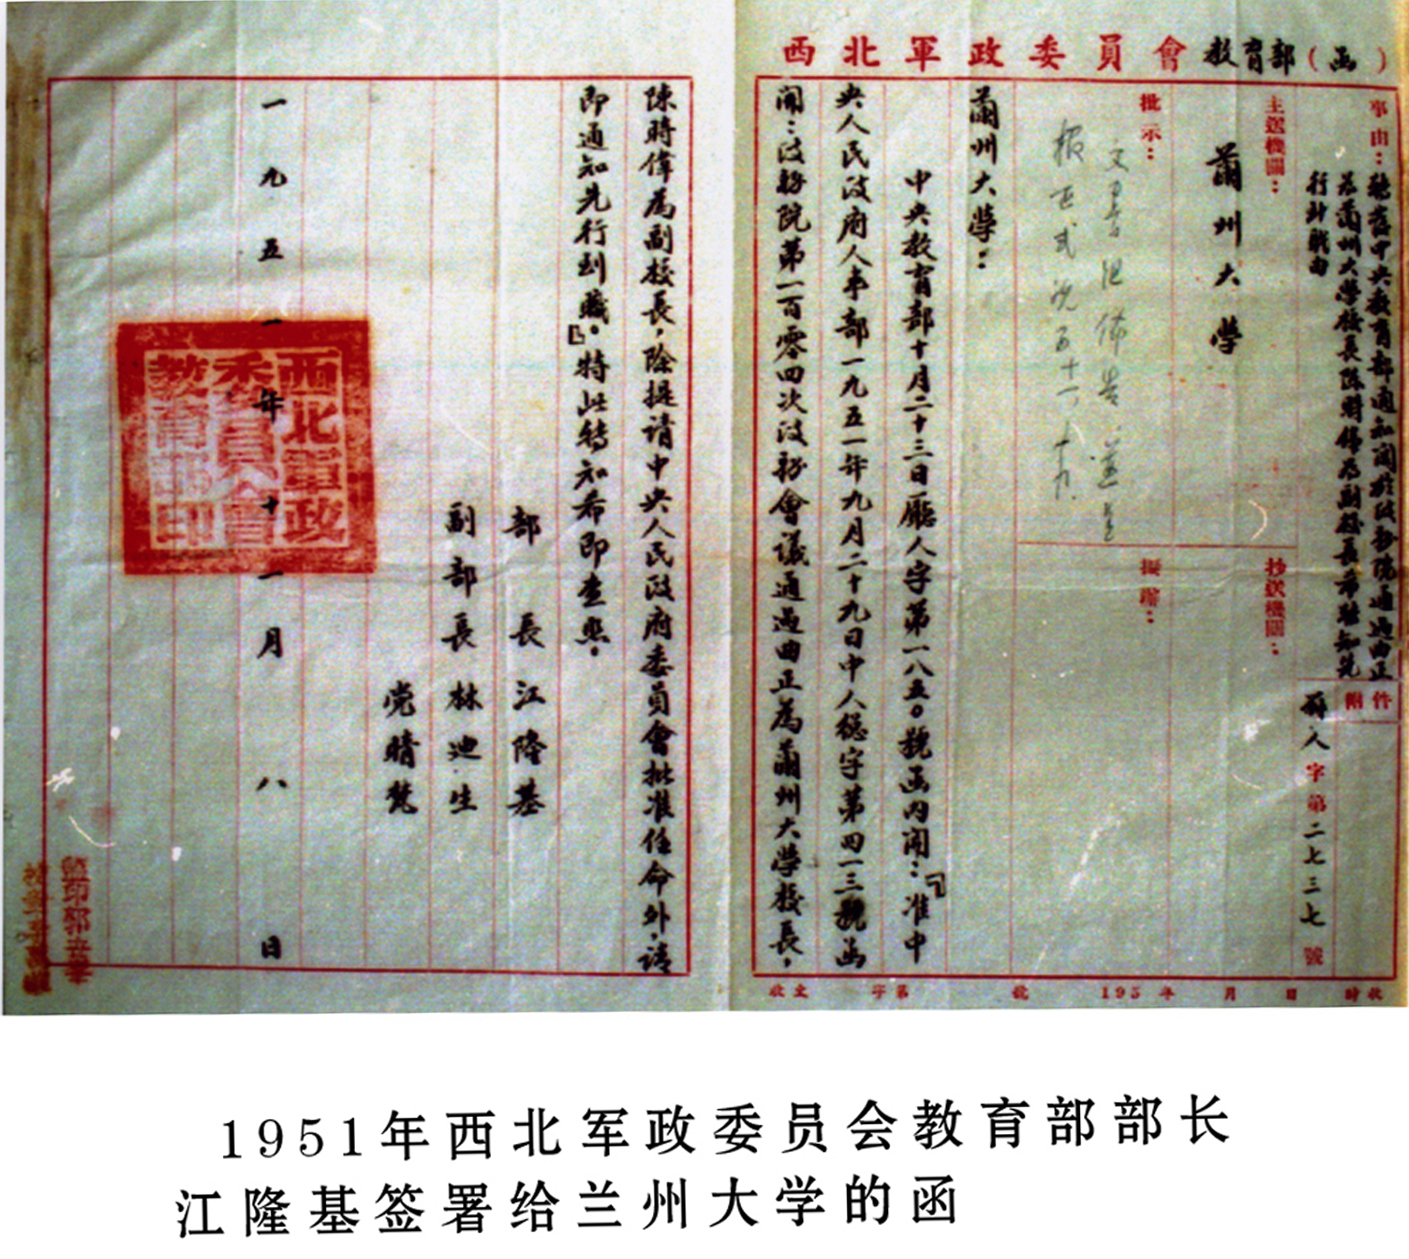 西北軍政委員會教育部(函)
事由:聽薦中央教育部通知關於政務院通過曲正
為蘭州大學校長陳時偉為副校長希驗知先
行到職由
附件
蘇人字第二七三七號
主送機關:
蘭州大學
抄送機關:
批示:
擬辦:
蘭州大學:
中央教育部十月二十三日廳人字第一八五〇號函內開:『准中
央人民政府人事部一九五一年九月二十九日中人總字第四一三號函
開:政務院第一百零四次政務會議通過曲正為蘭州大學校長,
陳時偉為副校長,除提請中央人民政府委員會批准任命外,請
即通知先行到職。』特此轉知希即查照。
部長江隆基
副部長林迪生
党晴梵
一九五一年十一月八日
西北軍政
委員會
教育部印
收時 日 月 195 年 號 第 字 收文
監印郭
1951年西北军政委员会教育部部长
江隆基签署给兰州大学的函